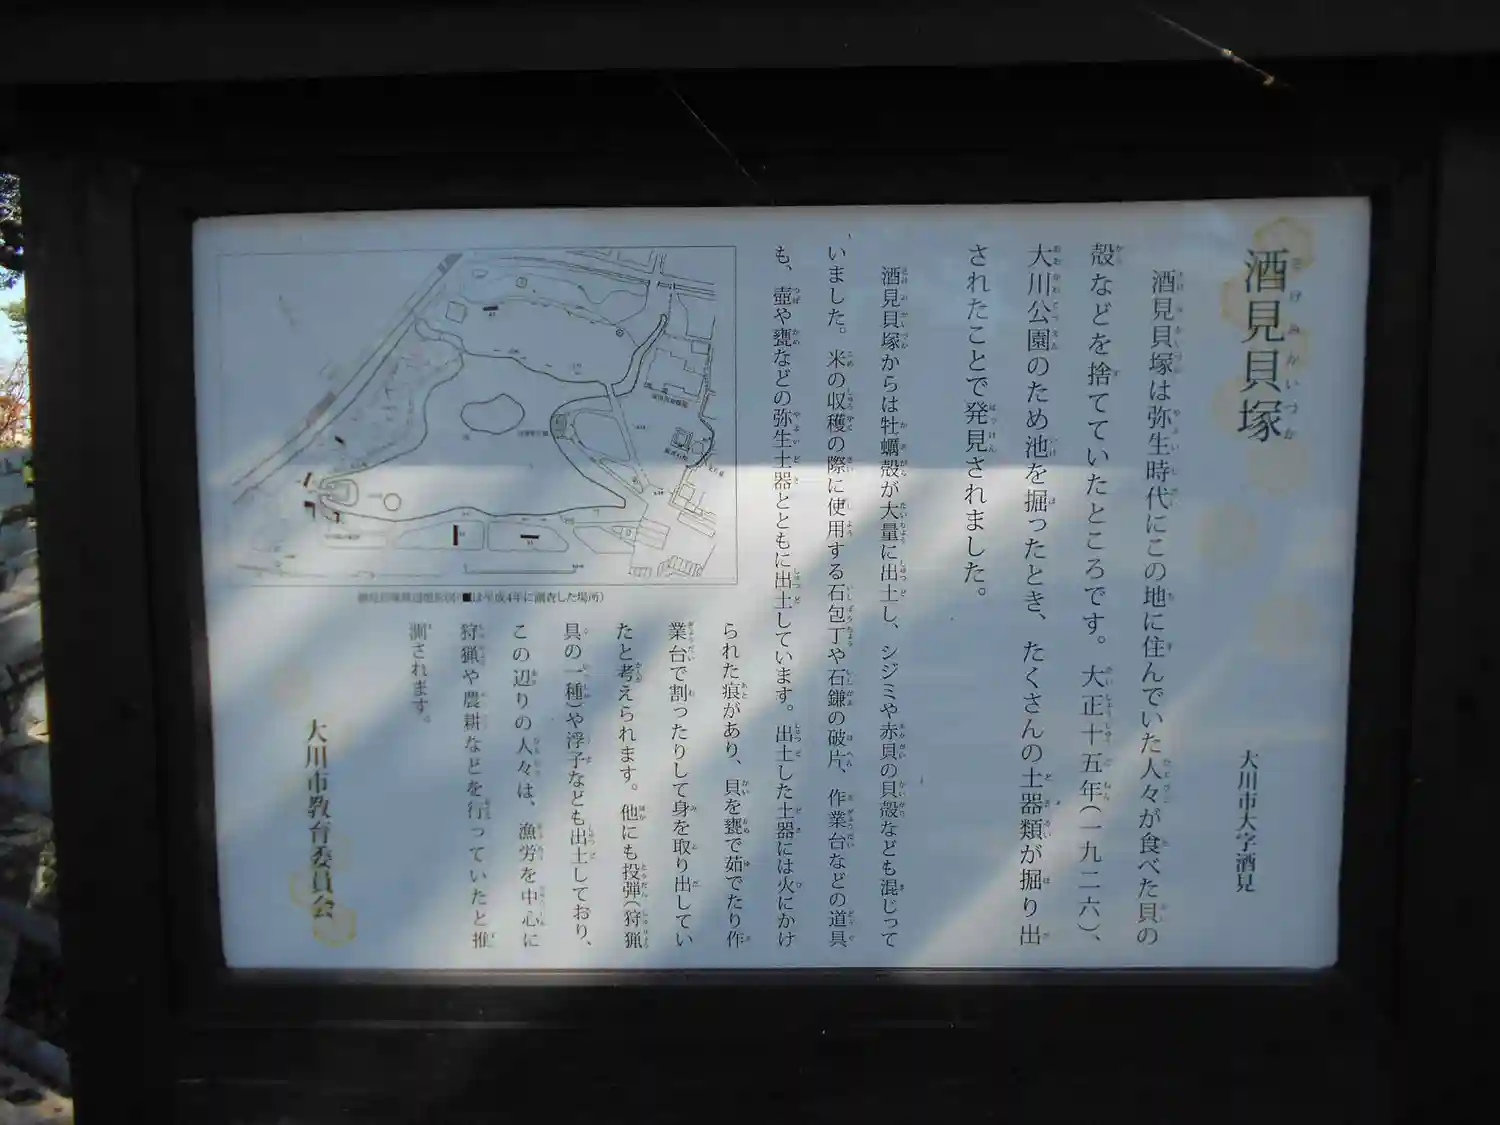 酒見貝塚
大川市大字酒見
酒見貝塚は弥生時代にこの地に住んでいた人々が食べた貝の
殻などを捨てていたところです。大正十五年(一九二六)、
大川公園のため池を掘ったとき、たくさんの土器類が掘り出
されたことで発見されました。
酒見貝塚からは牡蠣殻が大量に出土し、シジミや赤貝の貝殻なども混じって
いました。米の収穫の際に使用する石包丁や石鎌の破片、作業台などの道具
も、壺や甕などの弥生土器とともに出土しています。出土した土器には火にかけ
られた痕があり、貝を甕で茹でたり作
業台で割ったりして身を取り出してい
たと考えられます。他にも投弾(狩猟
具の一種)や浮子なども出土しており、
この辺りの人々は、漁労を中心に
狩猟や農耕などを行っていたと推
測されます。
大川市教育委員会
(■は平成4年に調査した場所)